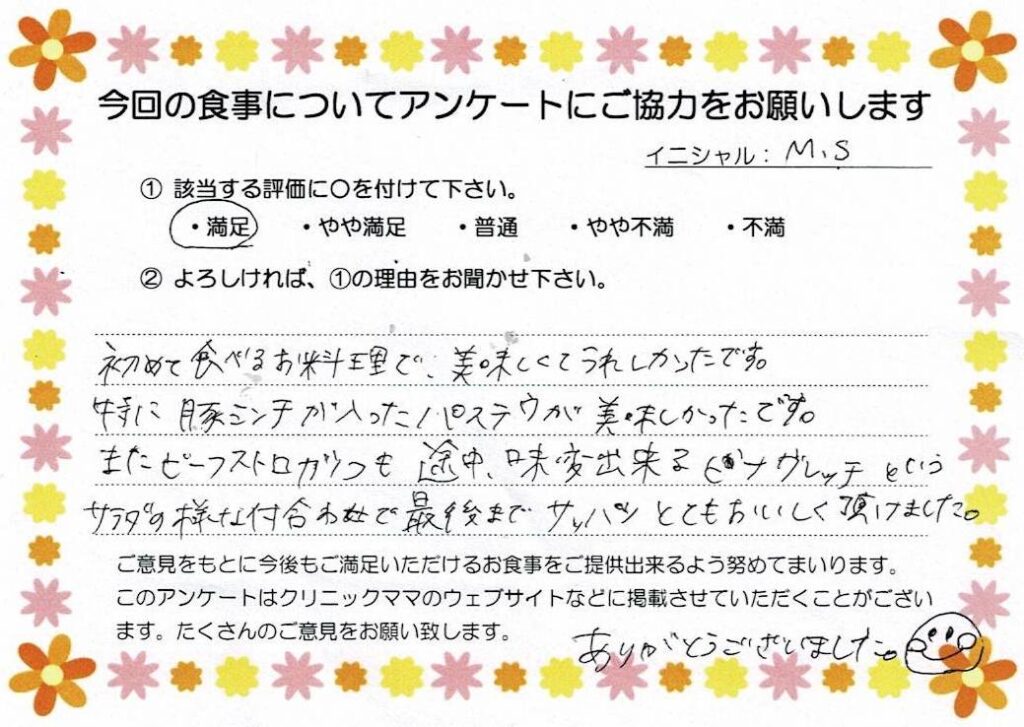 今回の食事についてアンケートにご協力をお願いします
イニシャル：M.S
① 該当する評価に〇を付けて下さい。
・満足 ・やや満足 ・普通 ・やや不満 ・不満
② よろしければ、①の理由をお聞かせ下さい。
初めて食べるお料理で、美味しくてうれしかったです。
特に豚ミンチが入ったパステウが美味しかったです。
またビーフストロガノフも途中、味変出来るビナグレッチという
サラダの様な付合わせで最後までサッパリとてもおいしく頂けました。
ご意見をもとに今後もご満足いただけるお食事をご提供出来るよう努めてまいります。
このアンケートはクリニックママのウェブサイトなどに掲載させていただくことがござい
ます。たくさんのご意見をお願い致します。
ありがとうございました。